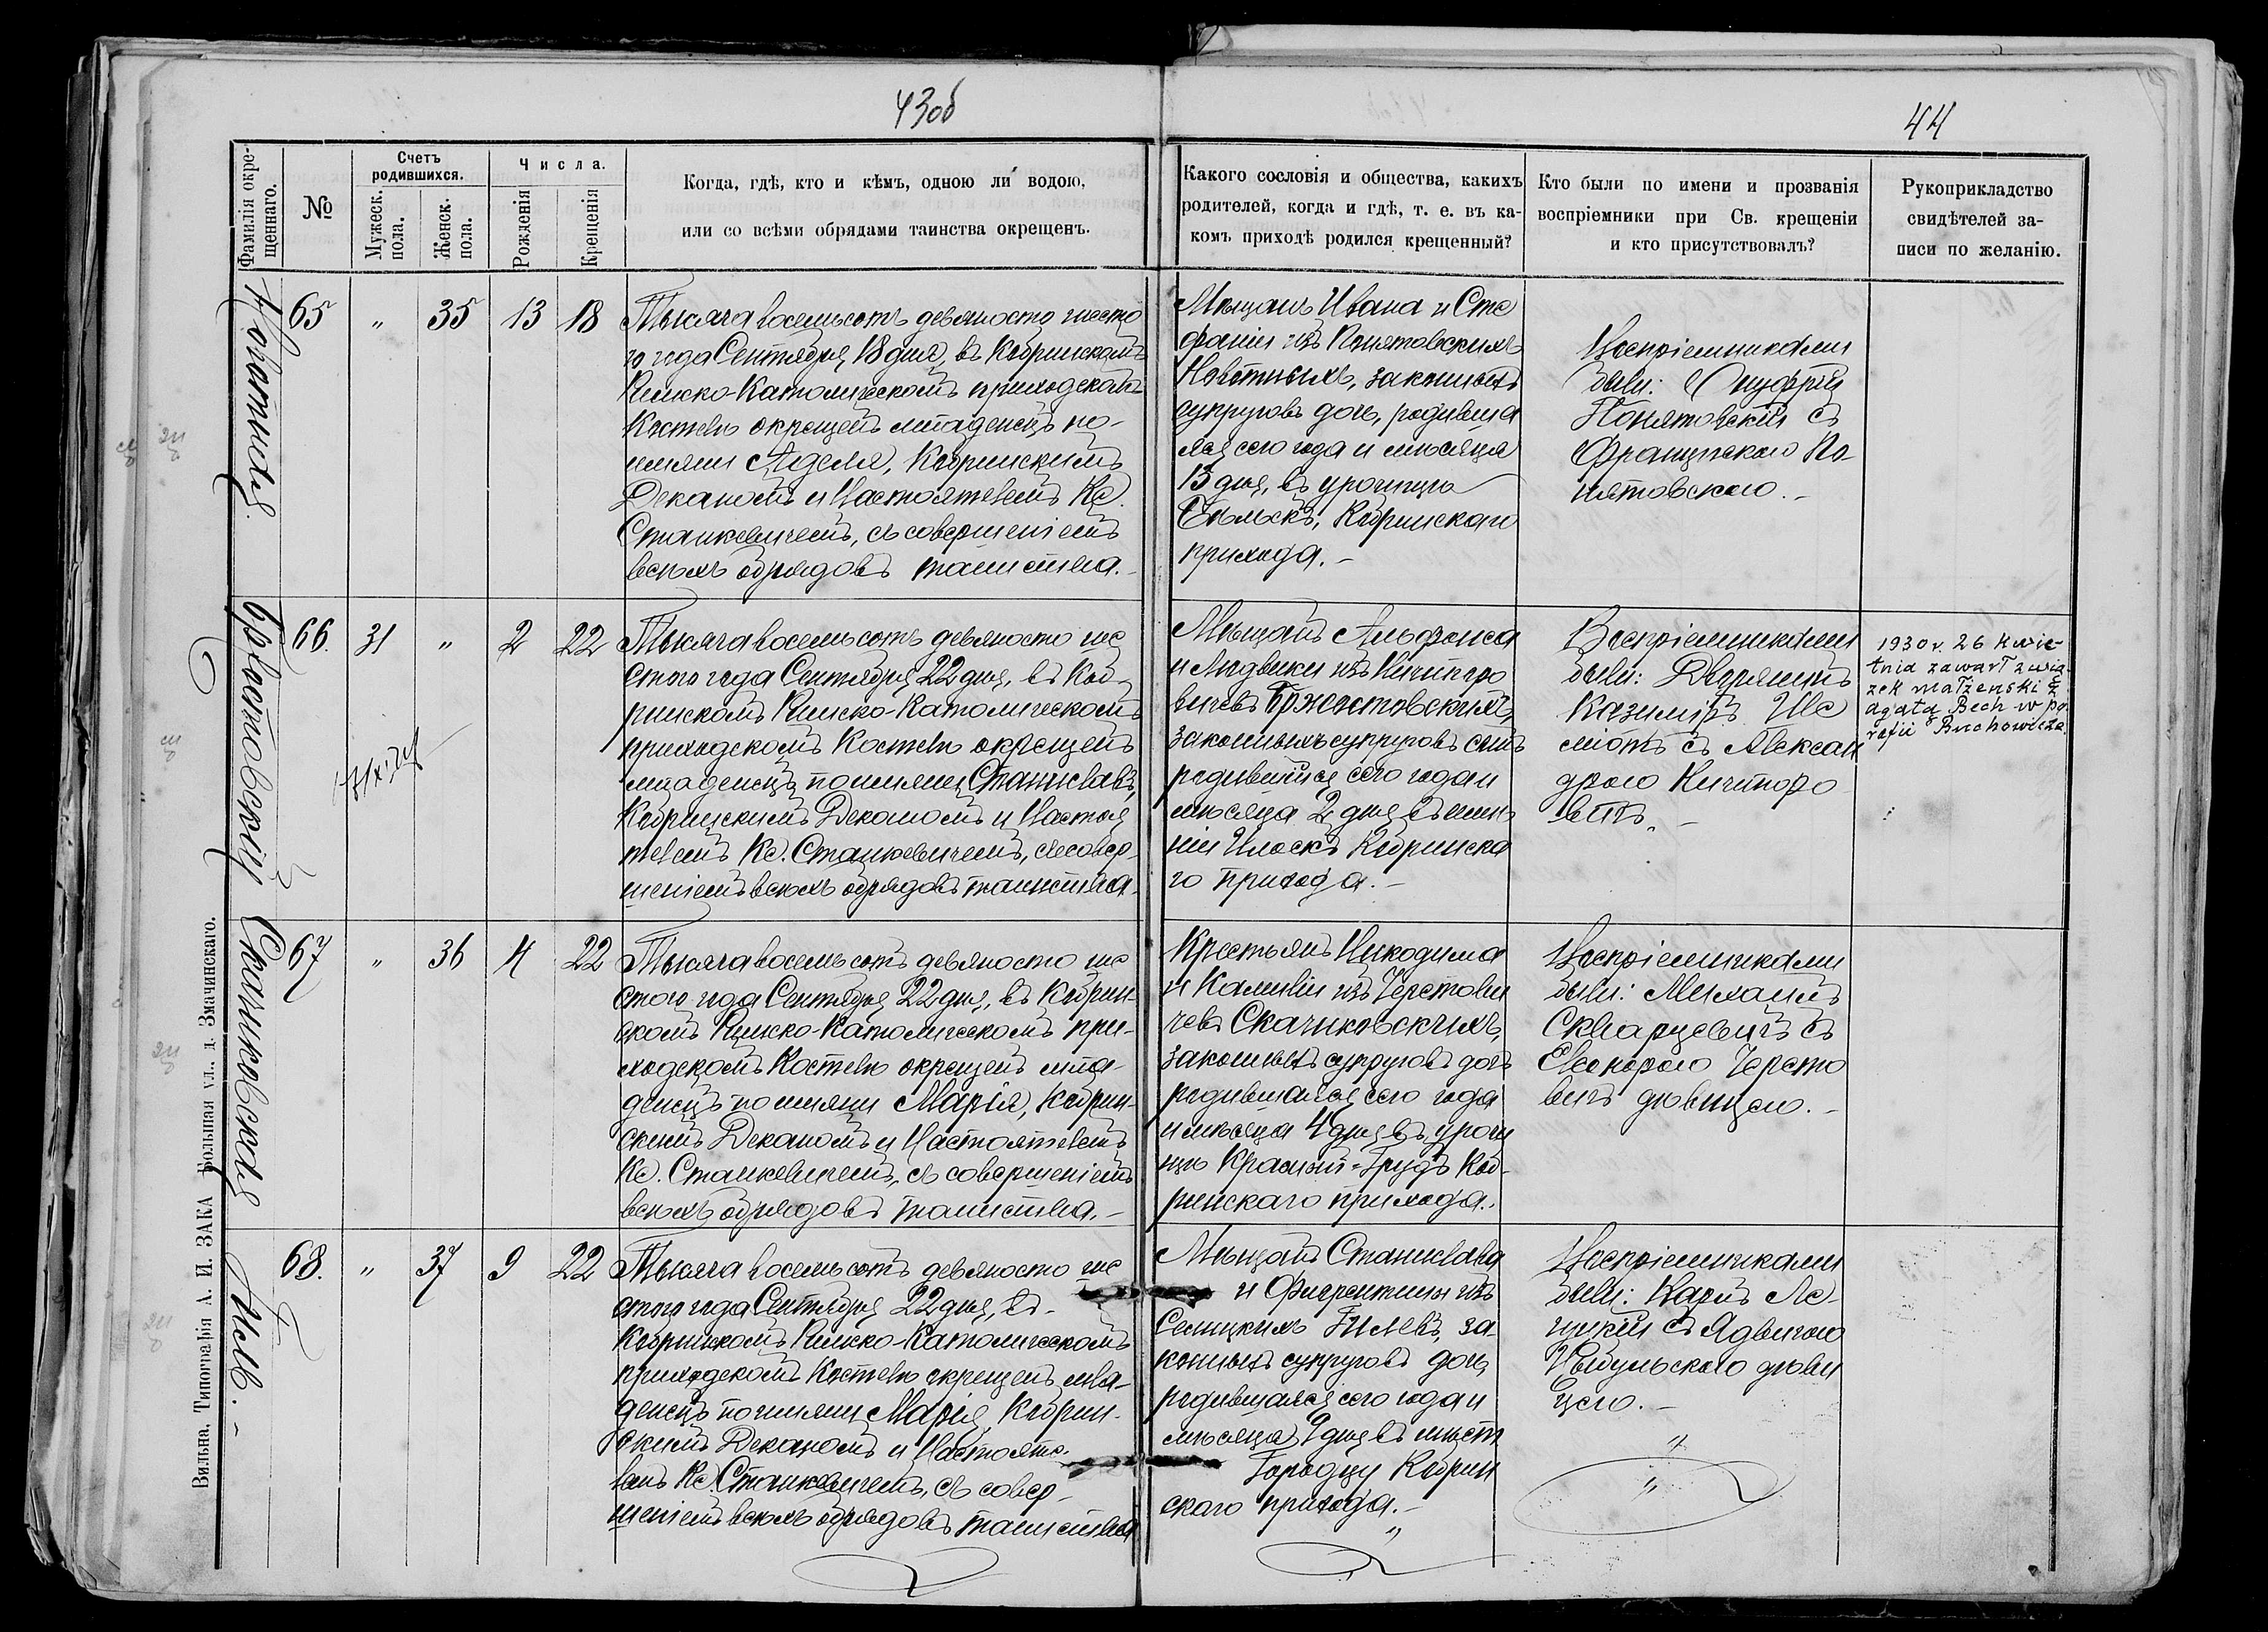 43об
44
Фамилія окрещеннаго.
№
Счетъ родившихся.
Мужеск. пола.
Женск. пола.
Числа.
Рожденія
Крещенія
Когда, гдѣ, кто и кѣмъ, одною ли водою,
или со всѣми обрядами таинства окрещенъ.
Какого сословія и общества, какихъ
родителей, когда и гдѣ, т. е. въ ка-
комъ приходѣ родился крещенный?
Кто были по имени и прозванія
воспріемники при Св. крещеніи
и кто присутствовалъ?
Рукоприкладство
свидѣтелей за-
писи по желанію.
65 " 35 13 18
Тысяча восемьсотъ девяносто шесто
го года Сентября 18 дня, въ Кобринскомъ
Римско-Католическомъ приходскомъ
Костелѣ окрещенъ младенецъ по-
имяни Аделя, Кобринскимъ
Деканомъ и Настоятелемъ Кс.
Станкевичемъ, съ совершеніемъ
всѣхъ обрядовъ таинства.-
Мѣщанъ Ивана и Сте
фаніи изъ Понятовскихъ
законныхъ
супруговъ дочь, родивша
яся сего года и мѣсяца
13 дня, въ урочищѣ
Кобринскаго
прихода.-
Воспріемниками
были: Онуфрій
Понятовскій съ
Францискою По
нятовскою.-
Бржостовскій
66. 31 " 2 22
Тысяча восемьсотъ девяносто ше
стого года Сентября 22 дня, въ Коб-
ринскомъ Римско-Католическомъ
приходскомъ Костелѣ окрещенъ
младенецъ по имяни Станиславъ,
Кобринскимъ Деканомъ и Настоя
телемъ Кс. Станкевичемъ, съ совер-
шеніемъ всѣхъ обрядовъ таинства.
Мѣщанъ Альфонса
и Людвики изъ Кичипоро
вичевъ Бржостовскихъ,
законныхъ супруговъ сынъ
родившійся сего года и
мѣсяца 2 дня въ имѣ
ніи Илоскъ Кобринска
го прихода.-
Воспріемниками
были: Дворянинъ
Казиміръ
съ Алексан
дрою
1930 r. 26 kwie-
tnia zawarł zwią-
zek małżeński z
Agatą Bech w pa-
rafii Buchowicze.
Скачиковская
67 " 36 4 22
Тысяча восемьсотъ девяносто ше
стого года Сентября 22 дня, въ Кобрин-
скомъ Римско-Католическомъ при-
ходскомъ Костелѣ окрещенъ мла-
денецъ по имяни Марія, Кобрин-
скимъ Деканомъ и Настоятелемъ
Кс. Станкевичемъ, съ совершеніемъ
всѣхъ обрядовъ таинства.-
Крестьянъ Никодима
и изъ Черстови
чевъ Скачиковскихъ,
законныхъ супруговъ дочь
родившаяся сего года
и мѣсяца 4 дня въ урочи
щѣ Красный-Грудъ Коб-
ринскаго прихода.-
Воспріемниками
были: Михаилъ
Скварцевичъ съ
Елеонорою Черсто
вичъ дѣвицею.-
Гиль.-
68. " 37 9 22
Тысяча восемьсотъ девяносто ше
стого года Сентября 22 дня, въ-
Кобринскомъ Римско-Католическомъ
приходскомъ Костелѣ окрещенъ мла-
денецъ по имяни Марія Кобрин-
скимъ Деканомъ и Настояте-
лемъ Кс. Станкевичемъ, съ совер-
шеніемъ всѣхъ обрядовъ таинства
Мѣщанъ Станислава
и изъ
Сеницкихъ Гилевъ, за-
конныхъ супруговъ дочь,
родившаяся сего года и
мѣсяца 9 дня въ мѣст
Городцу Кобрин
скаго прихода.-
Воспріемниками
были: Карлъ
съ Ядвигою
дѣви
цею.-
Вильна. Типографія А. И. ЗАКА Большая ул., д. Змачинскаго.